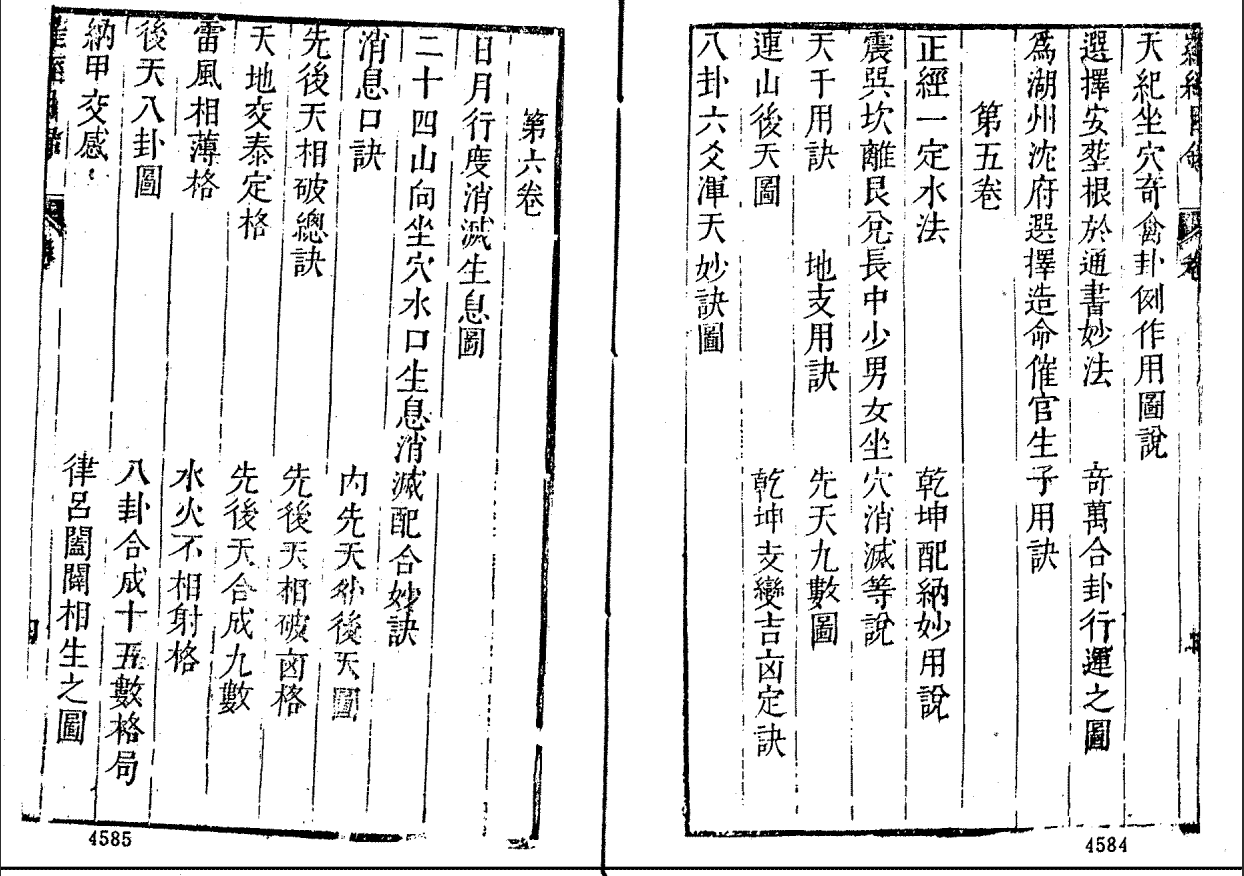 天紀坐穴奇禽卦例作用圖說
選擇安塟根於通書妙法 奇萬合卦行運之圖
爲湖州沈府選擇造命催官生子用訣
第五卷
正經一定水法 乾坤配納妙用說
震巽坎離艮兌長中少男女坐穴消滅等說
天干用訣 地支用訣 先天九數圖
連山後天圖 乾坤爻變吉凶定訣
八卦六爻渾天妙訣圖
4584
第六卷
日月行度消滅生息圖
二十四山向坐穴水口生息消滅配合妙訣
消息口訣 內先天外後天圖
先後天相破總訣 先後天相破凶格
天地交泰定格 先後天合成九數
雷風相薄格 水火不相射格
後天八卦圖 八卦合成十五數格局
納甲交感 律呂闔闢相生之圖
四
4585